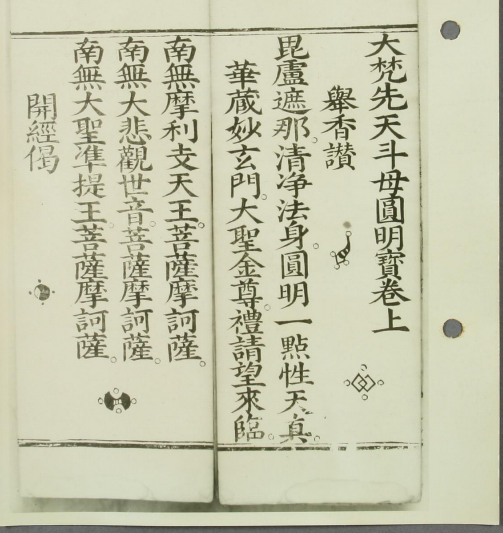 大梵先天斗母圓明寶卷上
舉香讃
毘盧遮那。清净法身。圓明一點性天真。
華藏妙玄門。大聖金尊。禮請望來臨。
南無摩利支天王。菩薩摩訶薩。
南無大悲觀世音。菩薩摩訶薩。
南無大聖準提王。菩薩摩訶薩。
開經偈